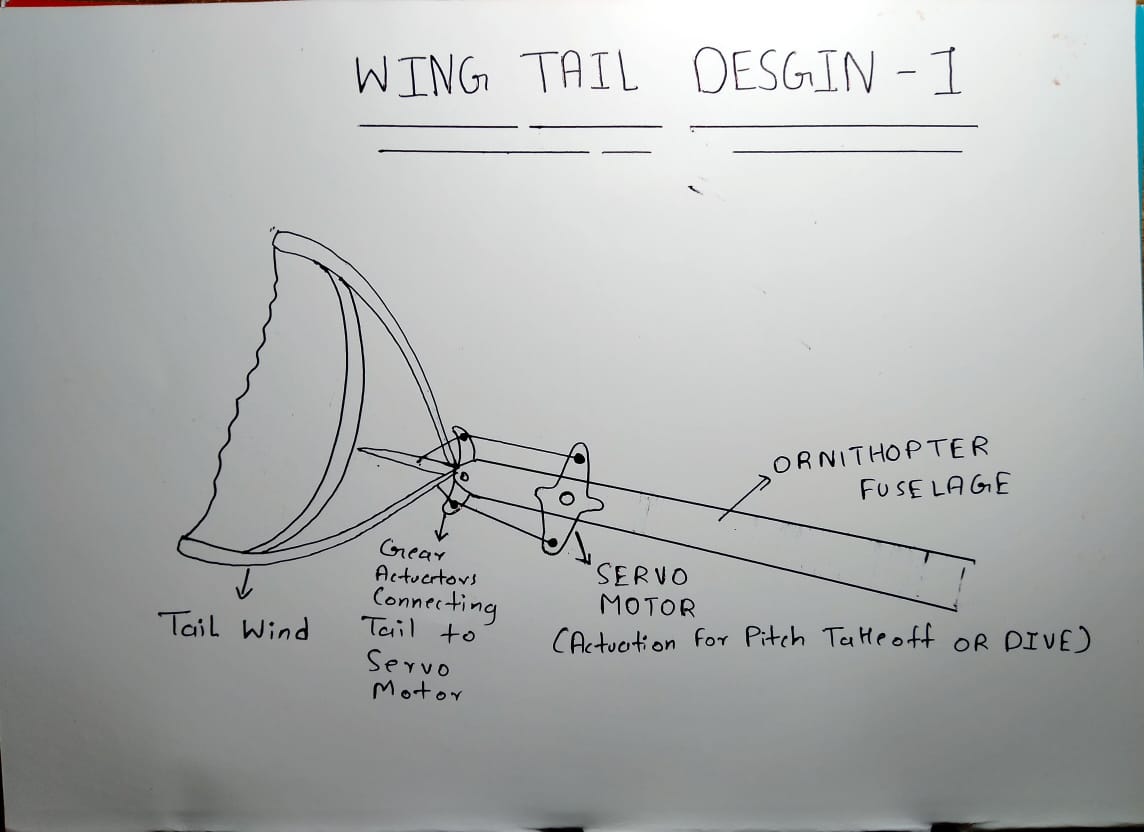 WING TAIL DESGIN - 1
ORNITHOPTER
FUSELAGE
Gear
Actuators
Connecting
Tail to
Servo
Motor
SERVO
MOTOR
(Actuation For Pitch Takeoff OR DIVE)
Tail Wind